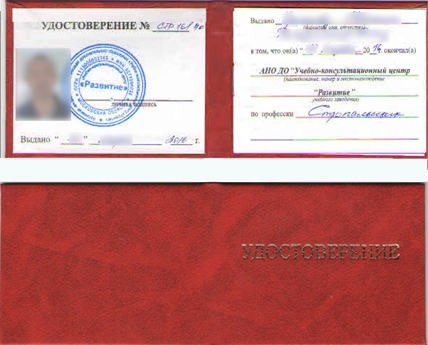 УДОСТОВЕРЕНИЕ № СТР 16/
«Развитие»
личная подпись
Выдано " " 2016 г.
Выдано
(фамилия, имя, отчество)
в том, что он(а) " " 2016 окончил(а)
АНО ДО "Учебно-консультационный центр
(наименование, номер и местонахождение
"Развитие"
учебного заведения)
по профессии Стропальщик
УДОСТОВЕРЕНИЕ